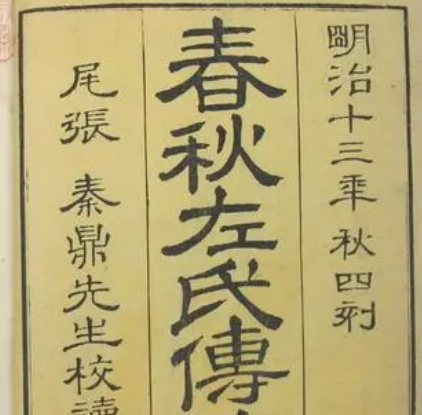 明治十三年秋四刻
春秋左氏傳
尾張 秦鼎先生校讀